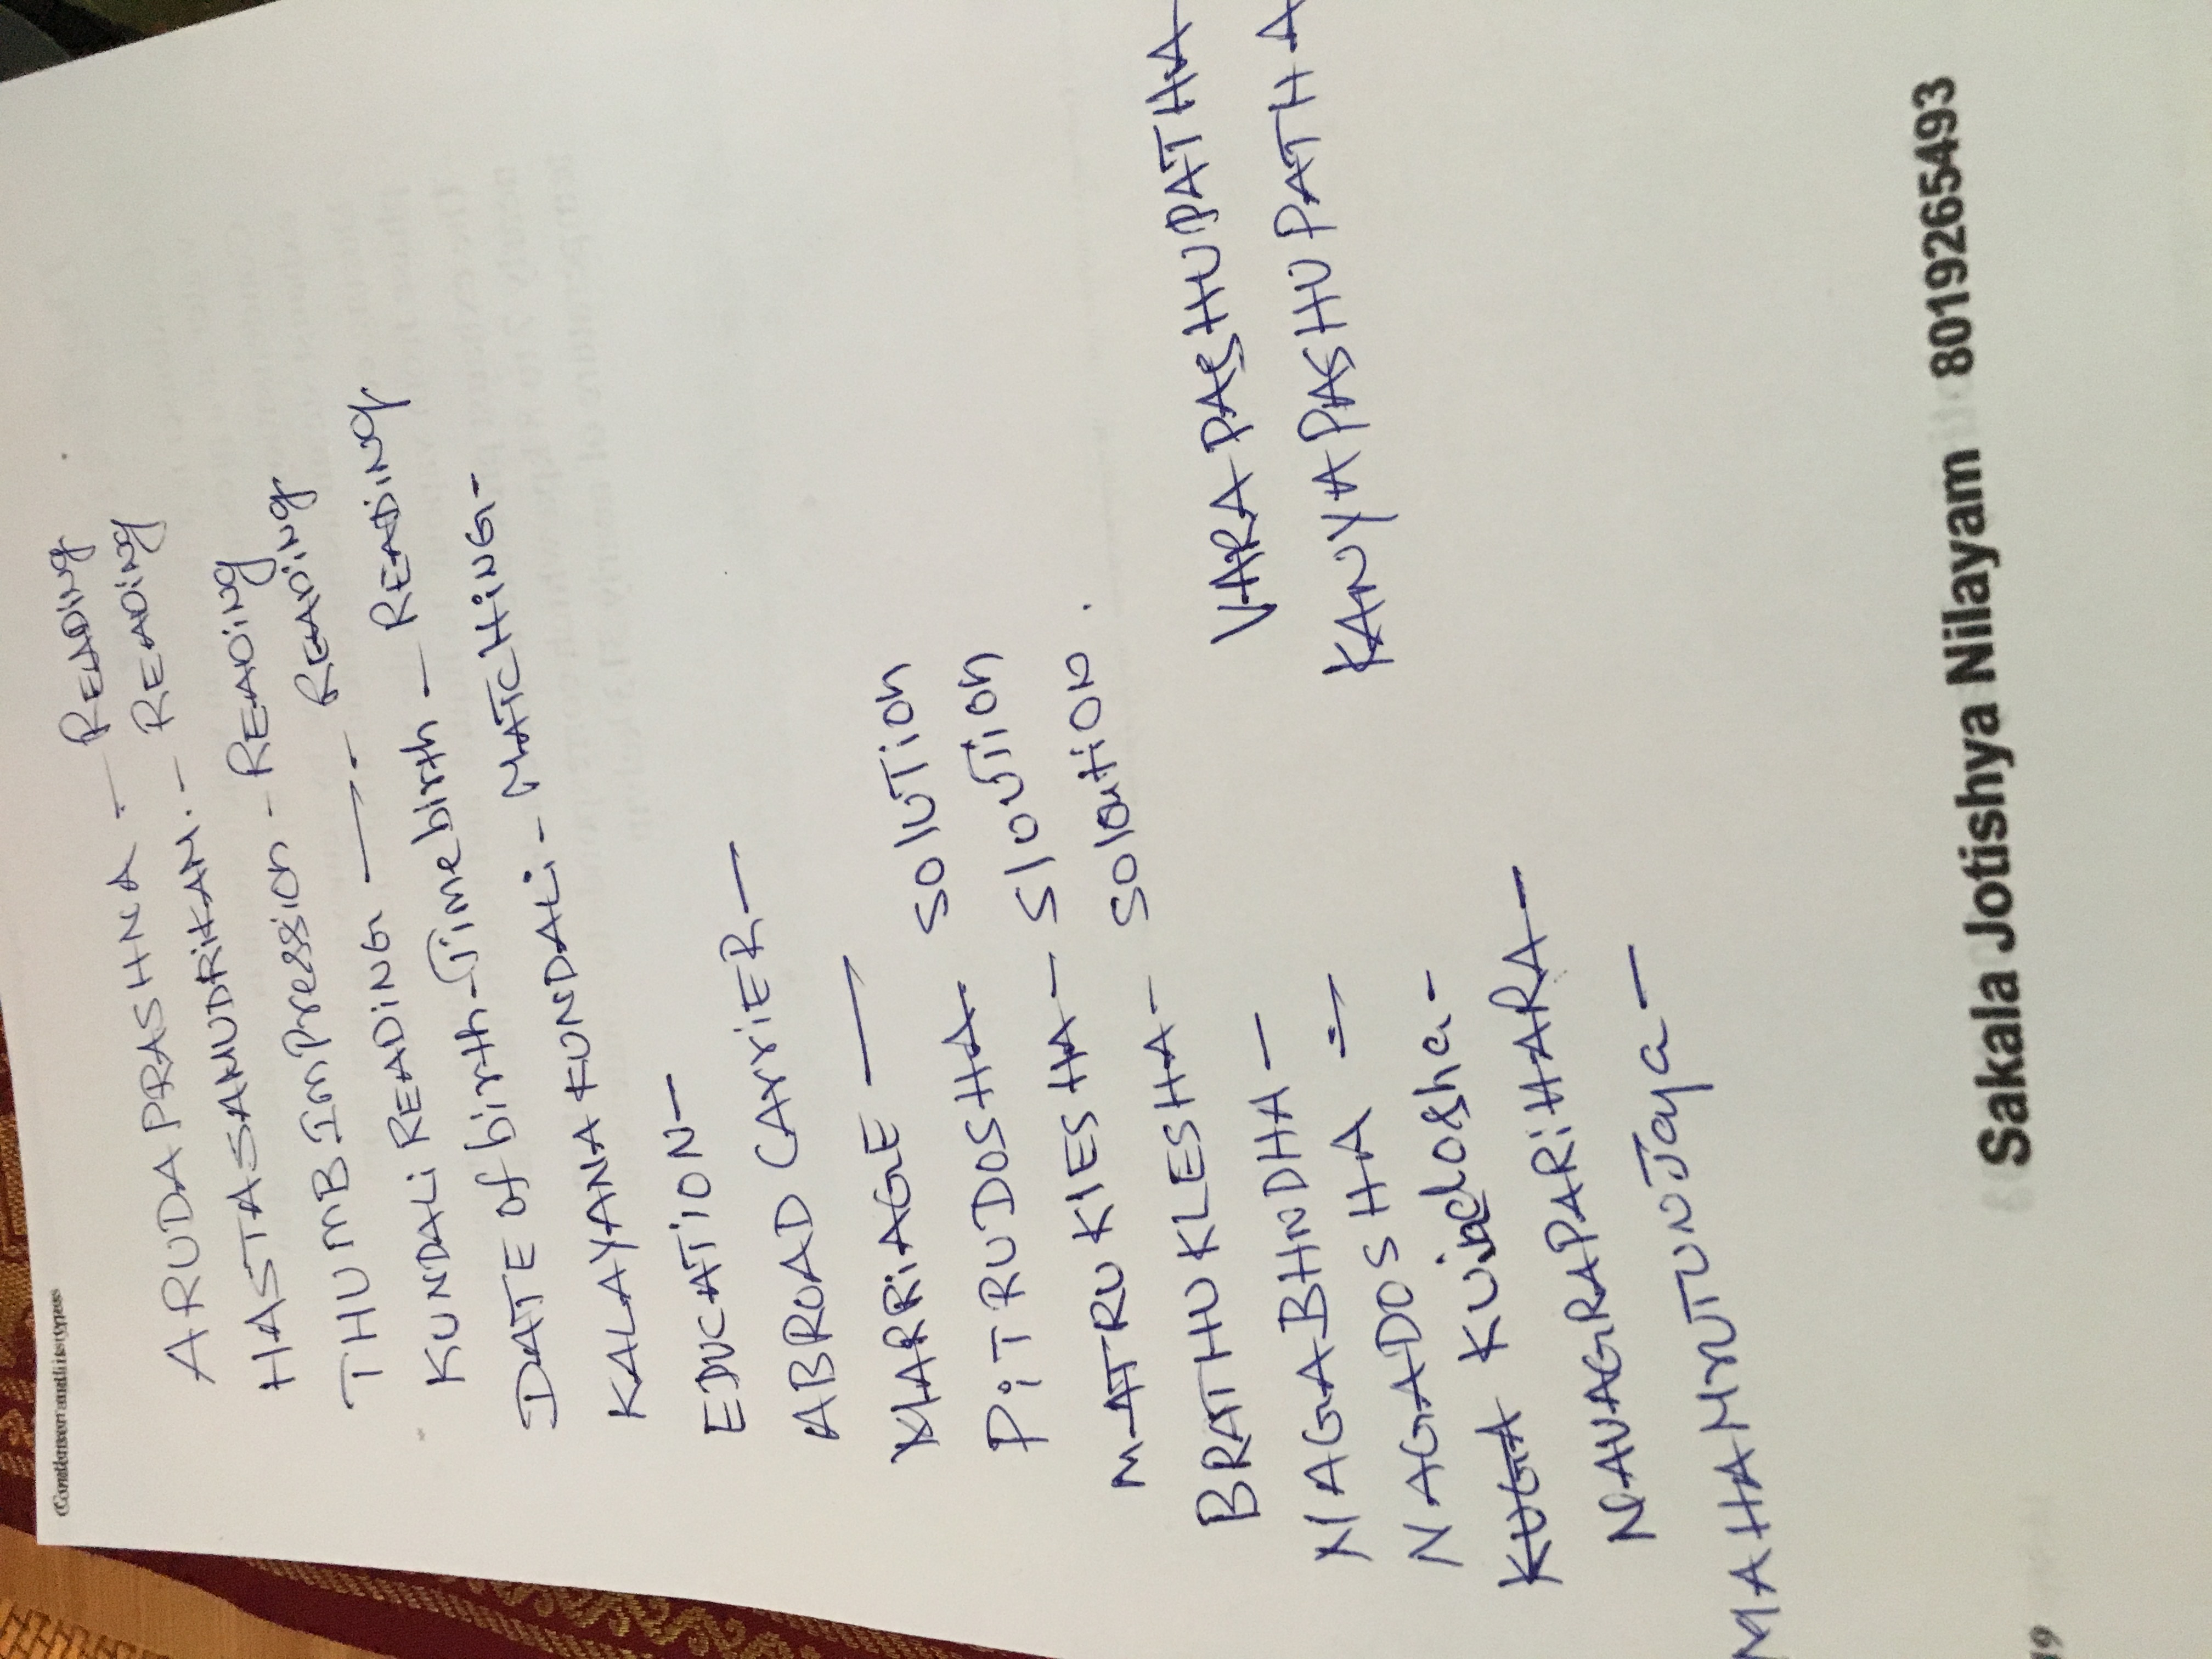 Condenser and its types
ARUDA PRASHNA - READING
HASTASAMUDRIKAM. - READING
THUMB Impression - READING
KUNDALI READING - READING
DATE of birth - Time birth - READING
KALAYANA KUNDALI - MATCHING -
EDUCATION -
ABROAD CArriER -
MARRIAGE -
PITRUDOSHA SOlUTion
MATRU KlESHA - SloUTion
BRATHU KLESHA - Soloution.
NAGABHNDHA -
NAGADOSHA -
KUGA Kujadosha -
NAVAGRAPARIHARA -
MAHAMruTUNJaya -
VARA PASHUPATHA
KANYA PASHUPATHA
Sakala Jotishya Nilayam 8019265493
19